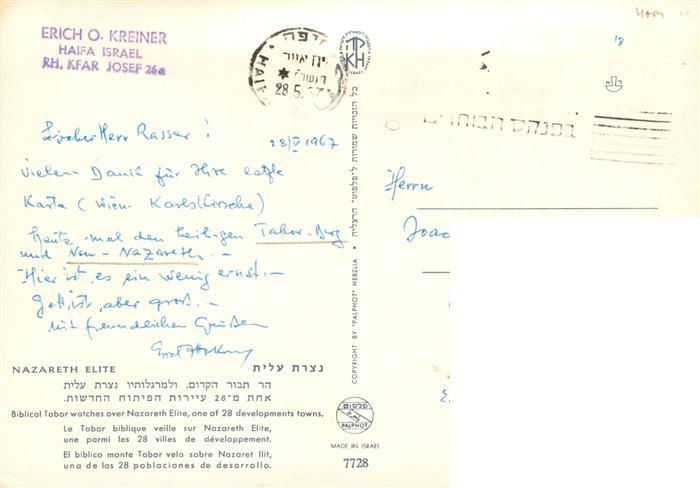 ERICH O. KREINER
HAIFA ISRAEL
RH, KFAR JOSEF 26a
חיפה
28.5.67
HAIFA
בפנקס הבוחרים
Lieber Herr Rasser!
28/V 1967
vielen Dank für Ihre letzte
Karte (Wien-Karlskirche)
Heute mal den heiligen Tabor-Berg
und Neu-Nazareth.-
Hier ist es ein wenig ernst.-
Gott ist aber gross.-
Mit freundlichen Grüßen
Herrn
NAZARETH ELITE
נצרת עלית
הר תבור הקדום, ולמרגלותיו נצרת עלית
אחת מ־28 עיירות הפיתוח החדשות.
Biblical Tabor watches over Nazareth Elite, one of 28 developments towns.
Le Tabor biblique veille sur Nazareth Elite,
une parmi les 28 villes de développement.
El biblico monte Tabor vela sobre Nazaret Ilit,
una de las 28 poblaciones de desarrollo.
כל הזכויות שמורות ל"פלפוט" הרצליה • COPYRIGHT BY "PALPHOT" HERZLIA
פלפוט
PALPHOT
MADE IN ISRAEL
7728